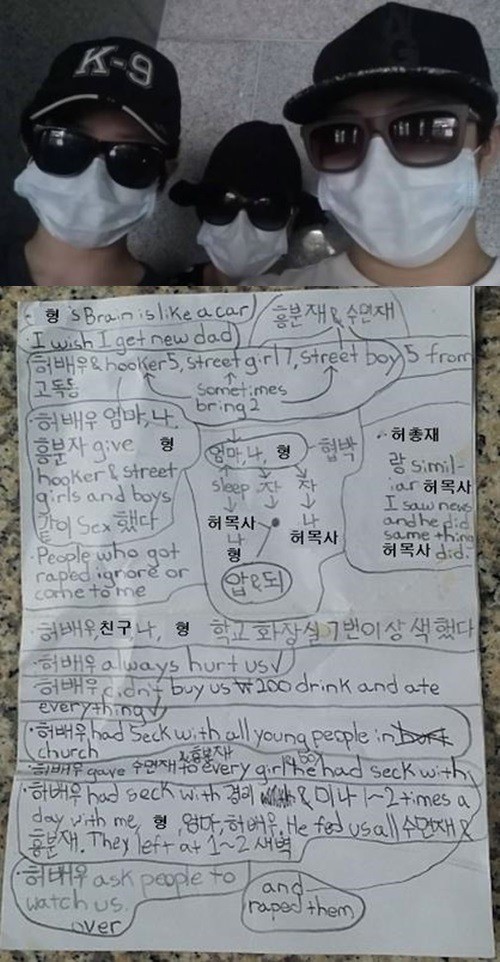 K-9
형's Brain is like a car
I wish I get new dad
흥분재 & 수면재
허배우 & hooker 5, street girl 7, street boy 5 from
고독동
sometimes
bring 2
허배우 엄마, 나,
흥분자 give 형
hooker & street
girls and boys
같이 sex 했다
People who got
raped ignore or
come to me
엄마, 나, 형 협박
sleep 자 자
허목사 나
나 허목사
형
압&되
허총재
랑 simil-
iar 허목사
I saw news
and he did
same thing
허목사 did.
허배우, 친구, 나, 형 학교 화장실 7번 이상 색했다
허배우 always hurt us ✓
허배우 didn't buy us ₩200 drink and ate
everything ✓
허배우 had seck with all young people in
church
& 흥분재
허배우 gave 수면재 to every girl he had seck with
허배우 had seck with & 미나 1~2 times a
day with me, 형, 엄마, 허배우. He fed us all 수면재 &
흥분재. They left at 1~2 새벽
허배우 ask people to
watch us.
over
and
raped them